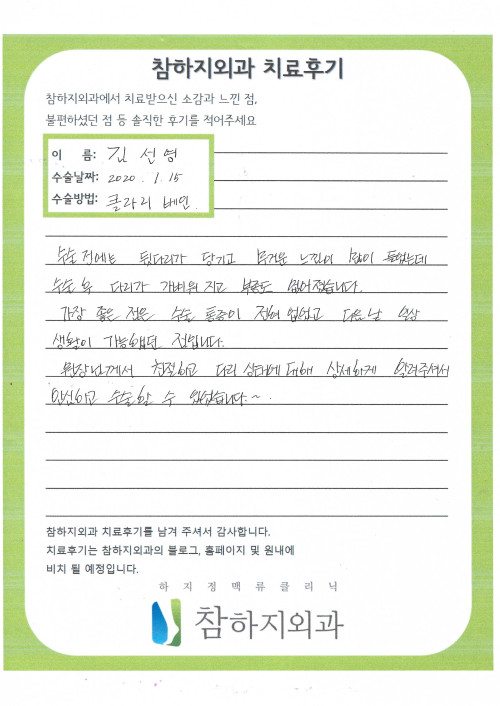 참하지외과 치료후기
참하지외과에서 치료받으신 소감과 느낀 점,
불편하셨던 점 등 솔직한 후기를 적어주세요
이 름: 김선영
수술날짜: 2020. 1. 15
수술방법: 클라리 베인.
수술 전에는 뒷다리가 당기고 무거운 느낌이 많이 들었는데
수술 후 다리가 가벼워 지고 부종도 없어졌습니다.
가장 좋은 점은 수술 통증이 전혀 없었고 다음날 일상
생활이 가능했던 점입니다.
원장님께서 친절하고 다리 상태에 대해 상세하게 알려주셔서
안심하고 수술할 수 있었습니다~.
참하지외과 치료후기를 남겨 주셔서 감사합니다.
치료후기는 참하지외과의 블로그, 홈페이지 및 원내에
비치 될 예정입니다.
하지정맥류클리닉
참하지외과